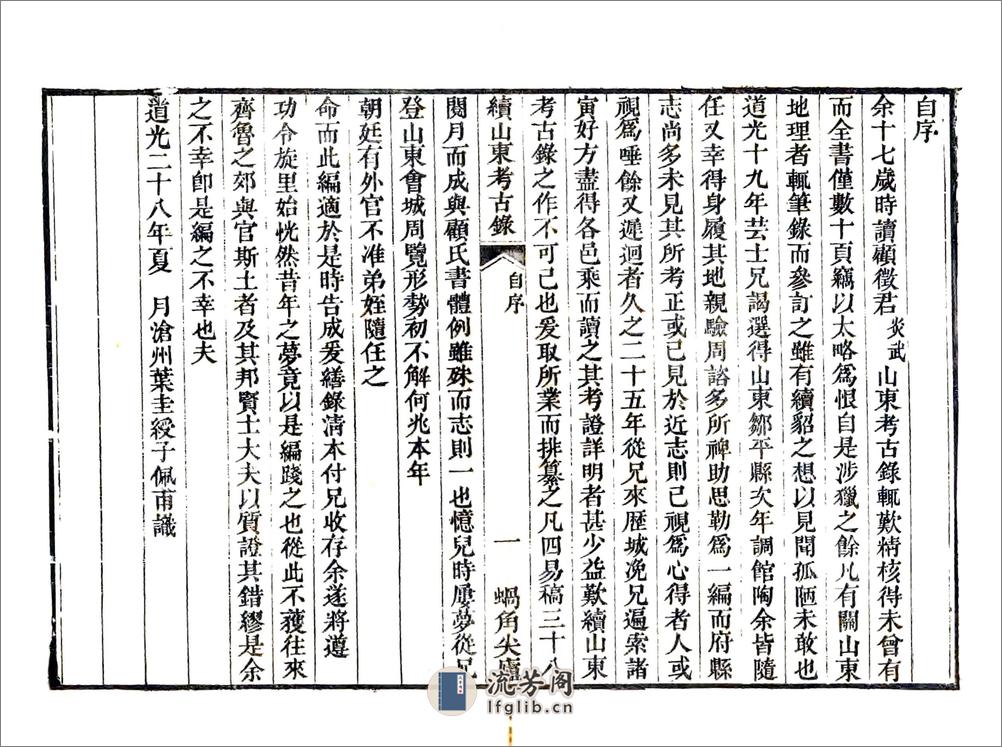 自序
余十七歲時讀顧徵君炎武山東考古錄輒歎精核得未曾有
而全書僅數十頁竊以太略爲恨自是涉獵之餘凡有關山東
地理者輒筆錄而參訂之雖有續貂之想以見聞孤陋未敢也
道光十九年芸士兄謁選得山東鄒平縣次年調館陶余皆隨
任又幸得身履其地親驗周諮多所裨助思勒爲一編而府縣
志尚多未見其所考正或已見於近志則已視爲心得者人或
視爲唾餘又遲迴者久之二十五年從兄來歷城浼兄遍索諸
寅好方盡得各邑乘而讀之其考證詳明者甚少益歎續山東
考古錄之作不可已也爰取所業而排纂之凡四易稿三十八
續山東考古錄 自序 一 蝸角尖廬
閱月而成與顧氏書體例雖殊而志則一也憶兒時屢夢從兄
登山東會城周覽形勢初不解何兆本年
朝廷有外官不准弟姪隨任之
命而此編適於是時告成爰繕錄清本付兄收存余遂將遵
功令旋里始恍然昔年之夢竟以是編踐之也從此不獲往來
齊魯之郊與官斯土者及其邦賢士大夫以質證其錯繆是余
之不幸卽是編之不幸也夫
道光二十八年夏 月滄州葉圭綬子佩甫識
流芳阁
lfglib.cn